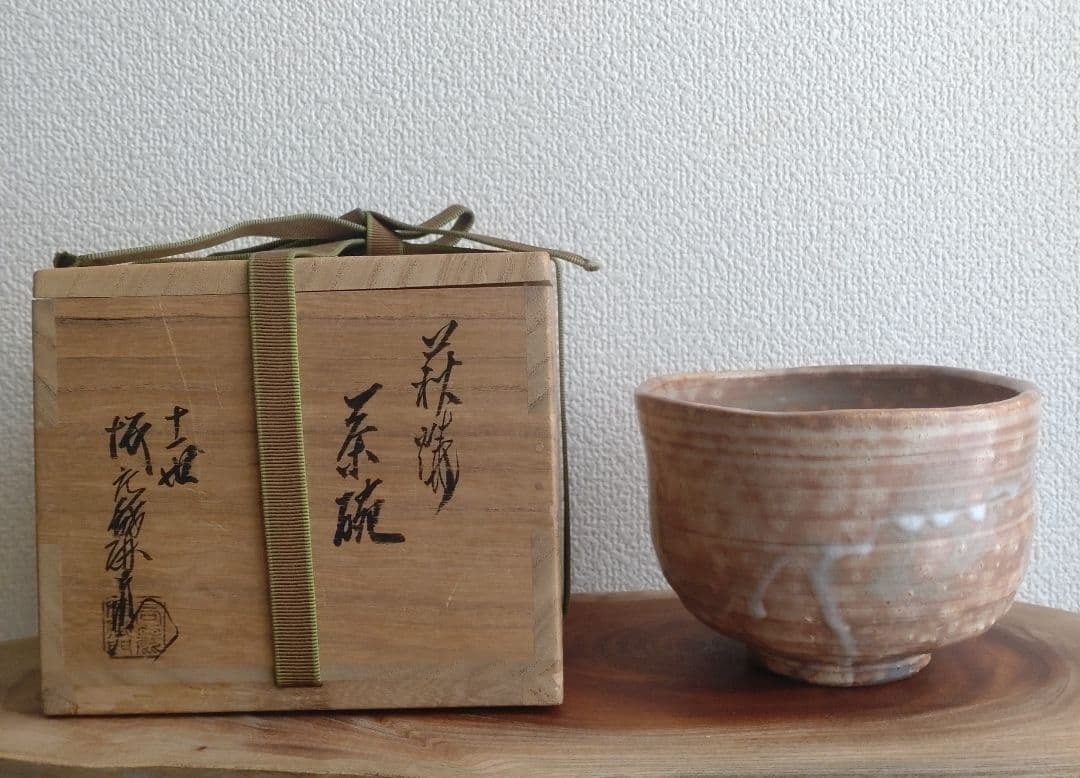 萩焼
茶碗
十一世
坂高麗左衛門